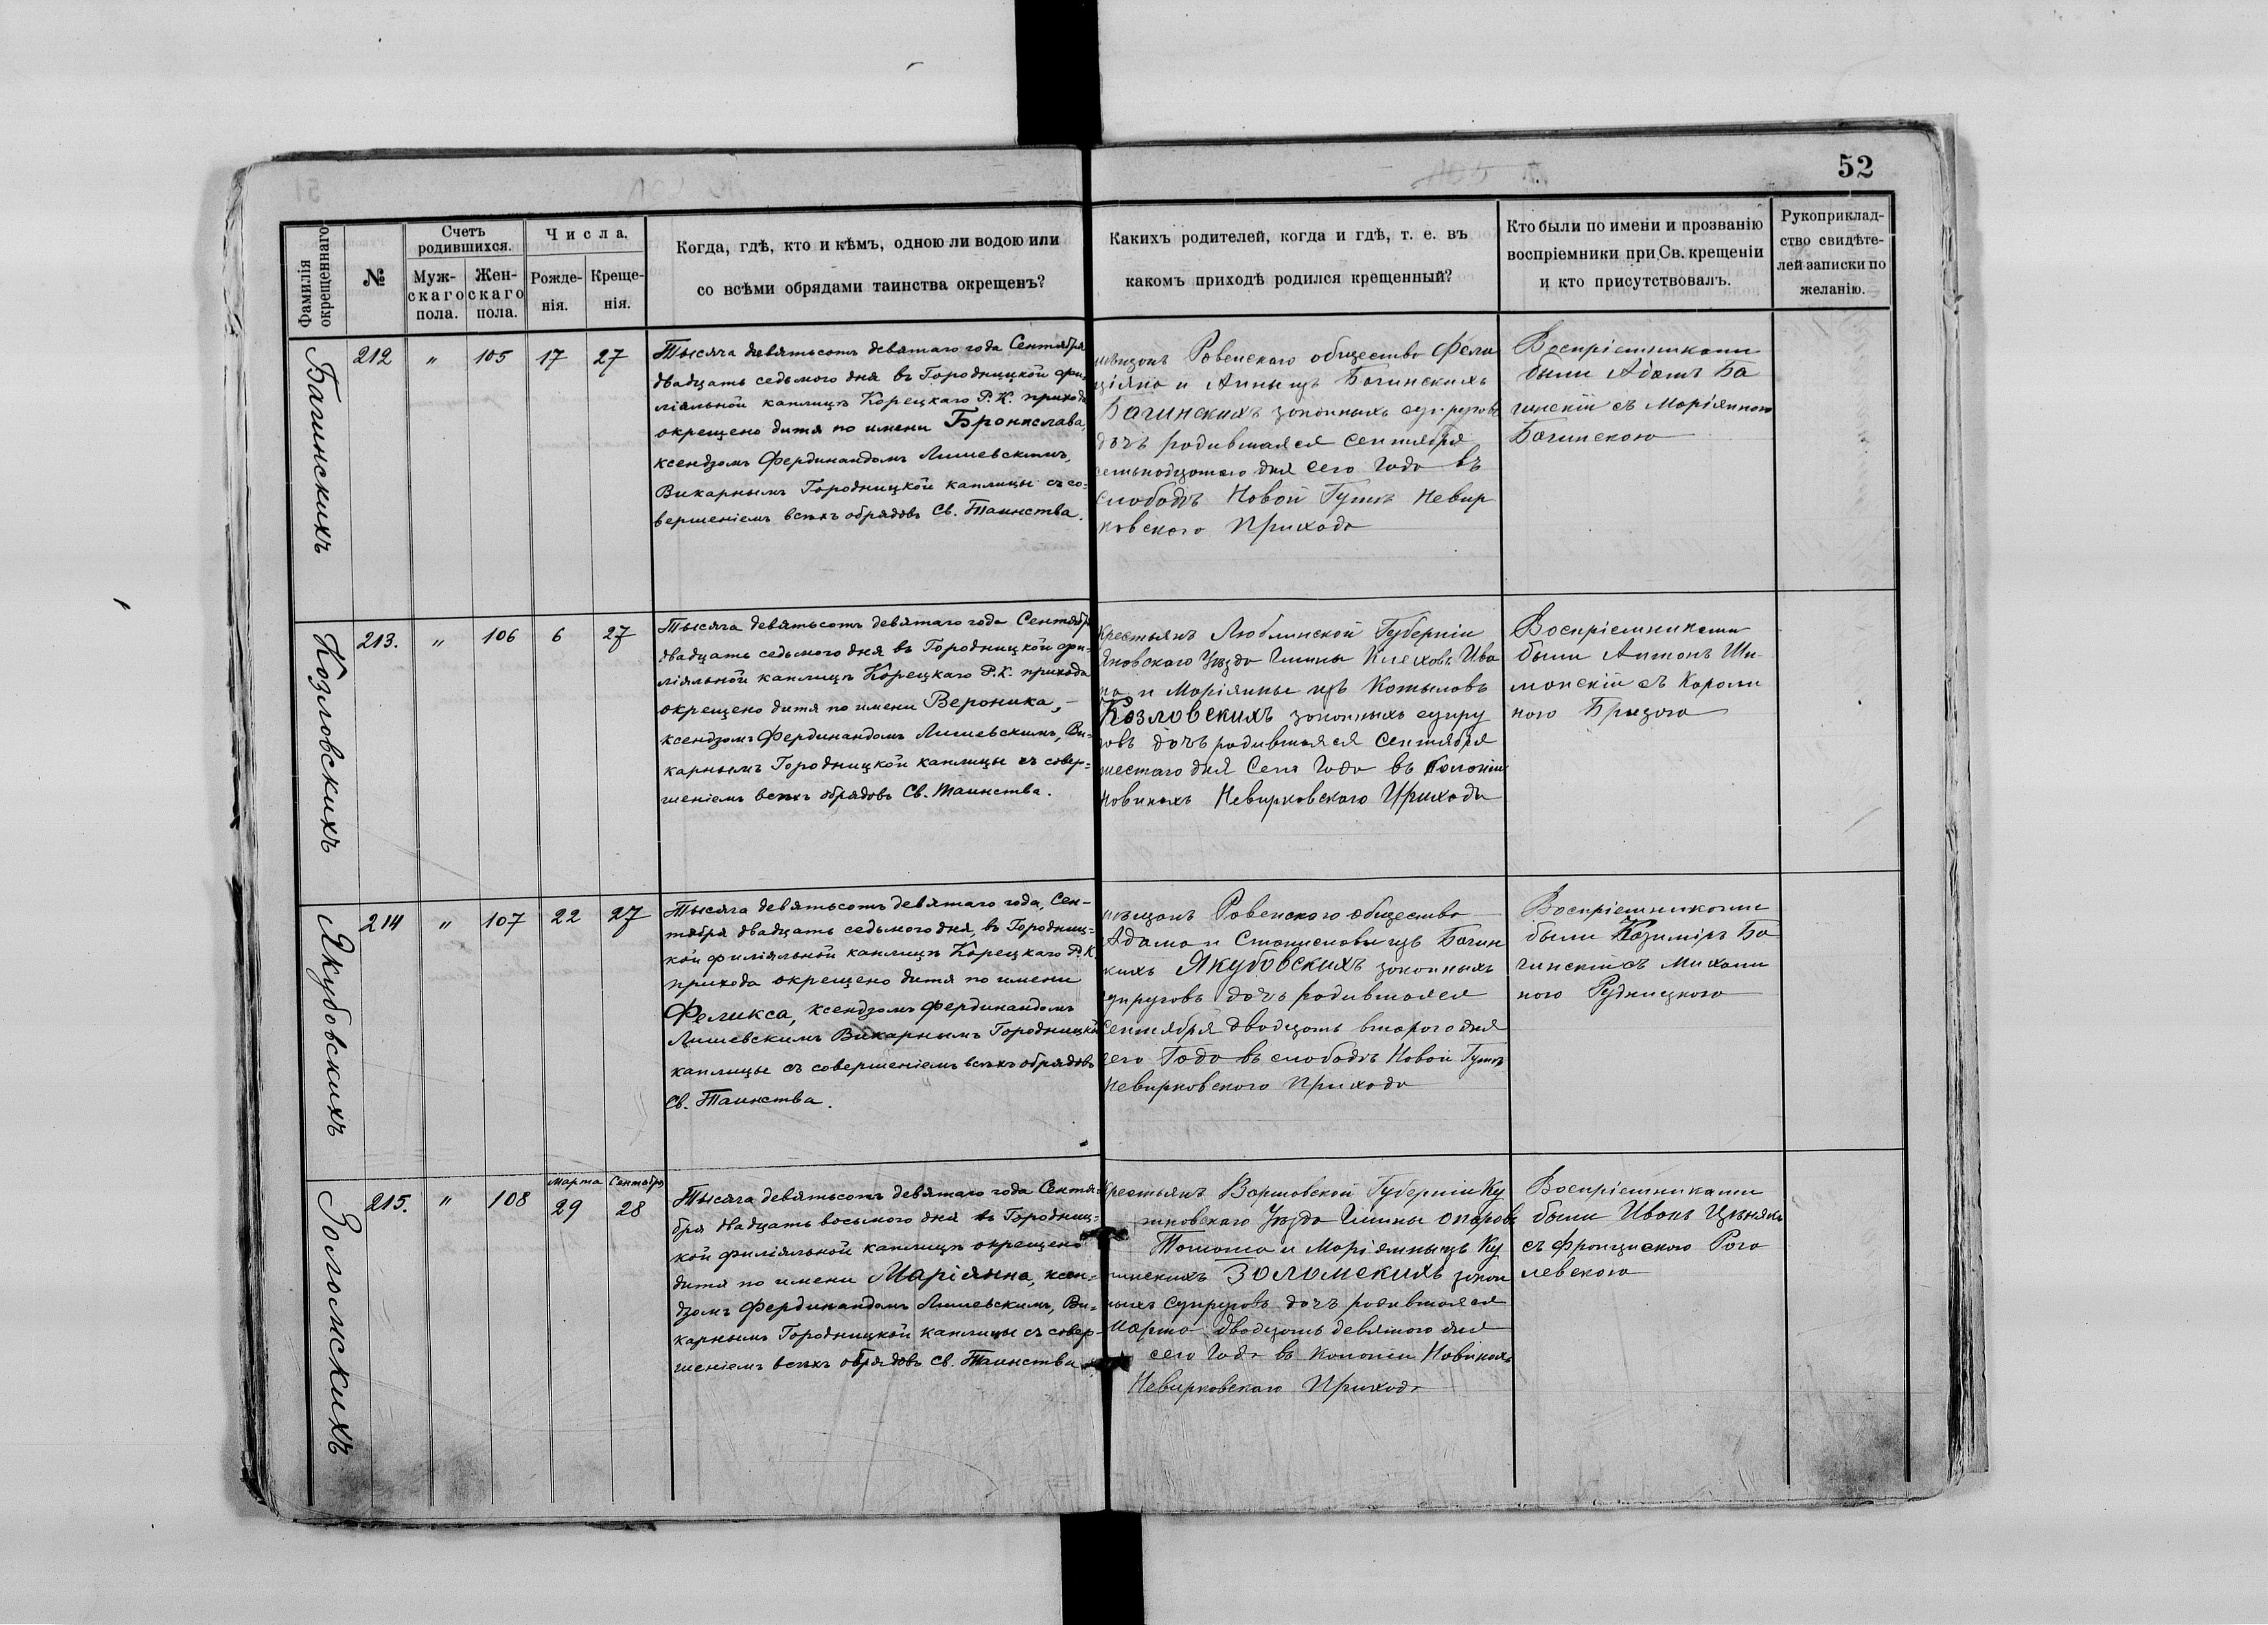 52
Фамилія окрещеннаго.
№
Счетъ родившихся.
Муж-скаго пола.
Жен-скаго пола.
Числа.
Рожде-нія.
Креще-нія.
Когда, гдѣ, кто и кѣмъ, одною ли водою или
со всѣми обрядами таинства окрещенъ?
Какихъ родителей, когда и гдѣ, т. е. въ
какомъ приходѣ родился крещенный?
Кто были по имени и прозванію
воспріемники при Св. крещеніи
и кто присутствовалъ.
Рукоприклад-
ство свидѣте-
лей записки по
желанію.
Багинскихъ
212 " 105 17 27
Тысяча девятьсотъ девятаго года Сентября
двадцать седьмого дня въ Городницкой фи-
ліяльной каплицѣ Корецкаго Р. К. прихода
окрещено дитя по имени Бронислава,
ксендзомъ Фердинандомъ Лишевскимъ,
Викарнымъ Городницкой каплицы съ со-
вершеніемъ всѣхъ обрядовъ Св. Таинства.
мѣщанъ Ровенскаго общества Фели
ціяна и Анны изъ Багинскихъ
Багинскихъ законныхъ супруговъ
дочь родившаяся Сентября
семьнадцатаго дня сего года въ
слободѣ Новой Гутѣ Невир
ковскаго Прихода
Воспріемниками
были Адамъ Ба
гинскій съ Маріянною
Багинскою
Козловскихъ
213. " 106 6 27
Тысяча девятьсотъ девятаго года Сентября
двадцать седьмого дня въ Городницкой фи-
ліяльной каплицѣ Корецкаго Р. К. прихода
окрещено дитя по имени Вероника, -
ксендзомъ Фердинандомъ Лишевскимъ, Ви-
карнымъ Городницкой каплицы съ совер-
шеніемъ всѣхъ обрядовъ Св. Таинства.
Крестьянъ Люблинской Губерніи
Яновскаго Уѣзда Гмины Ива
на и Маріянны изъ
Козловскихъ законныхъ супру
говъ дочь родившаяся Сентября
шестаго дня Сего Года въ Колоніи
Новинахъ Невирковскаго Прихода
Воспріемниками
были Антонъ Ши
манскій съ Кароли
ною
Якубовскихъ
214 " 107 22 27
Тысяча девятьсотъ девятаго года, Сен-
тября двадцать седьмого дня, въ Городниц-
кой филіяльной каплицѣ Корецкаго Р. К.
прихода окрещено дитя по имени
Феликса, ксендзомъ Фердинандомъ
Лишевскимъ Викарнымъ Городницкой
каплицы съ совершеніемъ всѣхъ обрядовъ
Св. Таинства.
мѣщанъ Ровенскаго общества
Адама и Станиславы изъ Багин
кихъ Якубовскихъ законныхъ
супруговъ дочь родившаяся
Сентября двадцать втораго дня
сего Года въ слободѣ Новой Гутѣ
Невирковскаго Прихода
Воспріемниками
были Казиміръ Ба
гинскій съ Михали
ною Рудницкою
Золомскихъ
Марта Сентября
215. " 108 29 28
Тысяча девятьсотъ девятаго года Сентя-
бря двадцать восьмого дня въ Городниц-
кой филіяльной каплицѣ окрещено
дитя по имени Маріянна, ксен-
дзомъ Фердинандомъ Лишевскимъ, Ви-
карнымъ Городницкой каплицы съ совер-
шеніемъ всѣхъ обрядовъ Св. Таинства
Крестьянъ Варшавской Губерніи Ку
тновскаго Уѣзда Гмины Опоровъ
Томаша и Маріянны изъ Ку
Золомскихъ закон
ныхъ супруговъ дочь родившаяся
Марта двадцать девятаго дня
сего Года въ Колоніи Новинахъ
Невирковскаго Прихода
Воспріемниками
были Иванъ
съ Францискою Рога
левскою